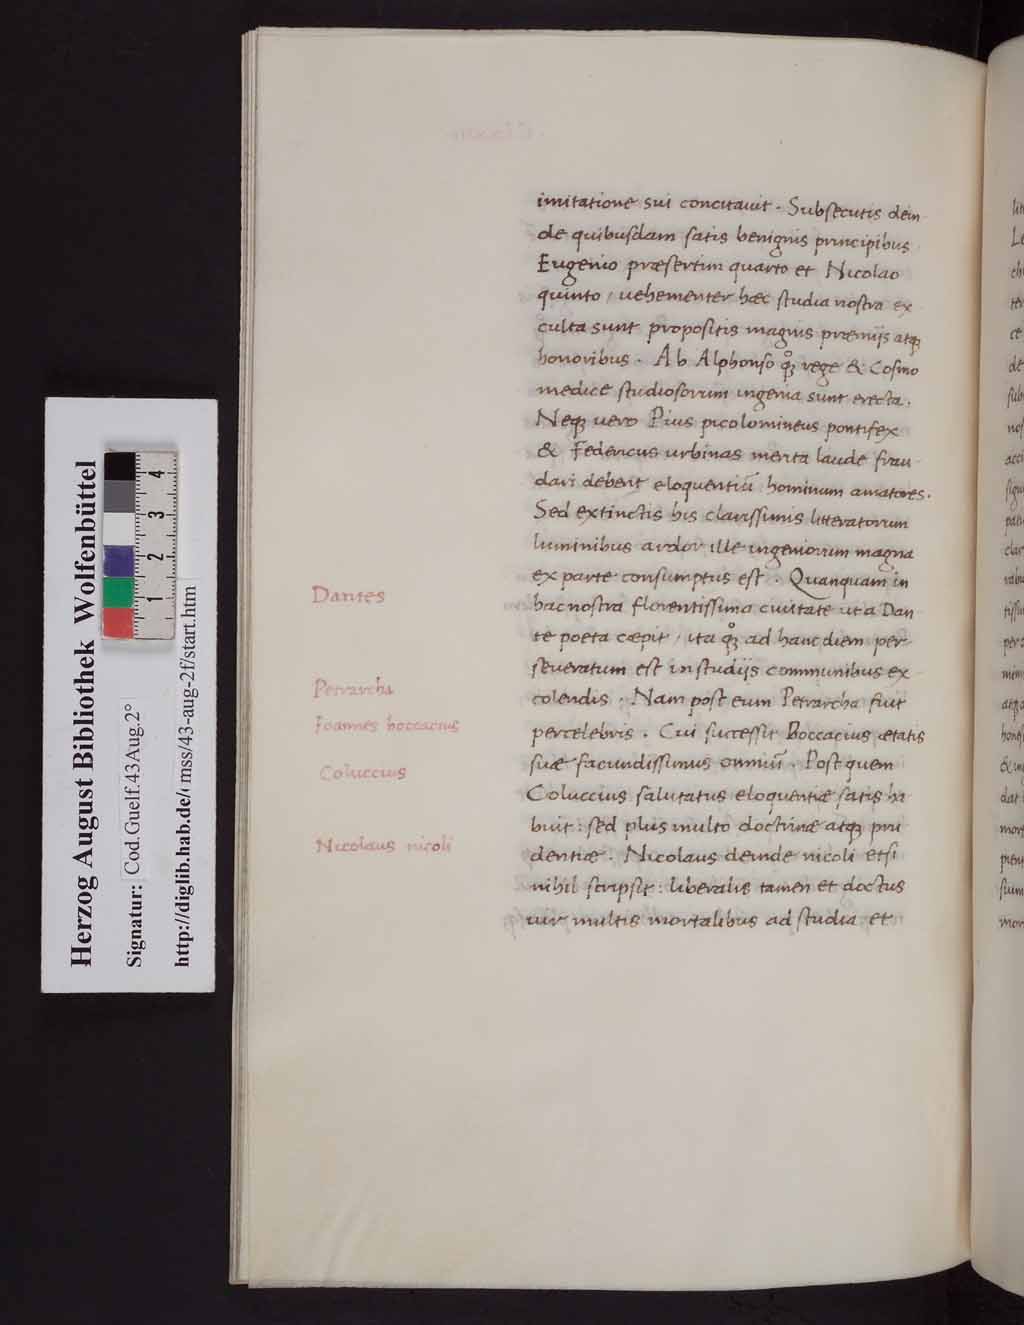 imitatione sui concitauit. Subsecutis dein
de quibusdam satis benignis principibus
Eugenio præsertim quarto et Nicolao
quinto / uehementer hæc studia nostra ex
culta sunt propositis magnis præmijs atqꝫ
honoribus. Ab Alphonso qꝫ rege & Cosmo
medice studiosorum ingenia sunt erecta.
Neqꝫ uero Pius picolomineus pontifex
& Federicus urbinas merita laude frau
dari debent eloquentiū hominum amatores.
Sed extinctis his clarissimis litteratorum
luminibus ardor ille ingeniorum magna
ex parte consumptus est. Quanquam in
hac nostra florentissima ciuitate ut a Dan
te poeta cœpit / ita qꝫ ad hanc diem per
seueratum est in studijs communibus ex
colendis. Nam post eum Petrarcha fuit
percelebris. Cui successit Boccacius ætatis
suæ facundissimus omniū. Post quem
Coluccius salutatus eloquentiæ satis ha
buit: sed plus multo doctrinæ atqꝫ pru
dentiæ. Nicolaus deinde nicoli etsi
nihil scripsit: liberalis tamen et doctus
uir multis mortalibus ad studia et
Dantes
Petrarcha
Ioannes boccacius
Coluccius
Nicolaus nicoli
Herzog August Bibliothek Wolfenbüttel
Signatur: Cod.Guelf.43Aug.2°
http://diglib.hab.de/mss/43-aug-2f/start.htm
1 2 3 4